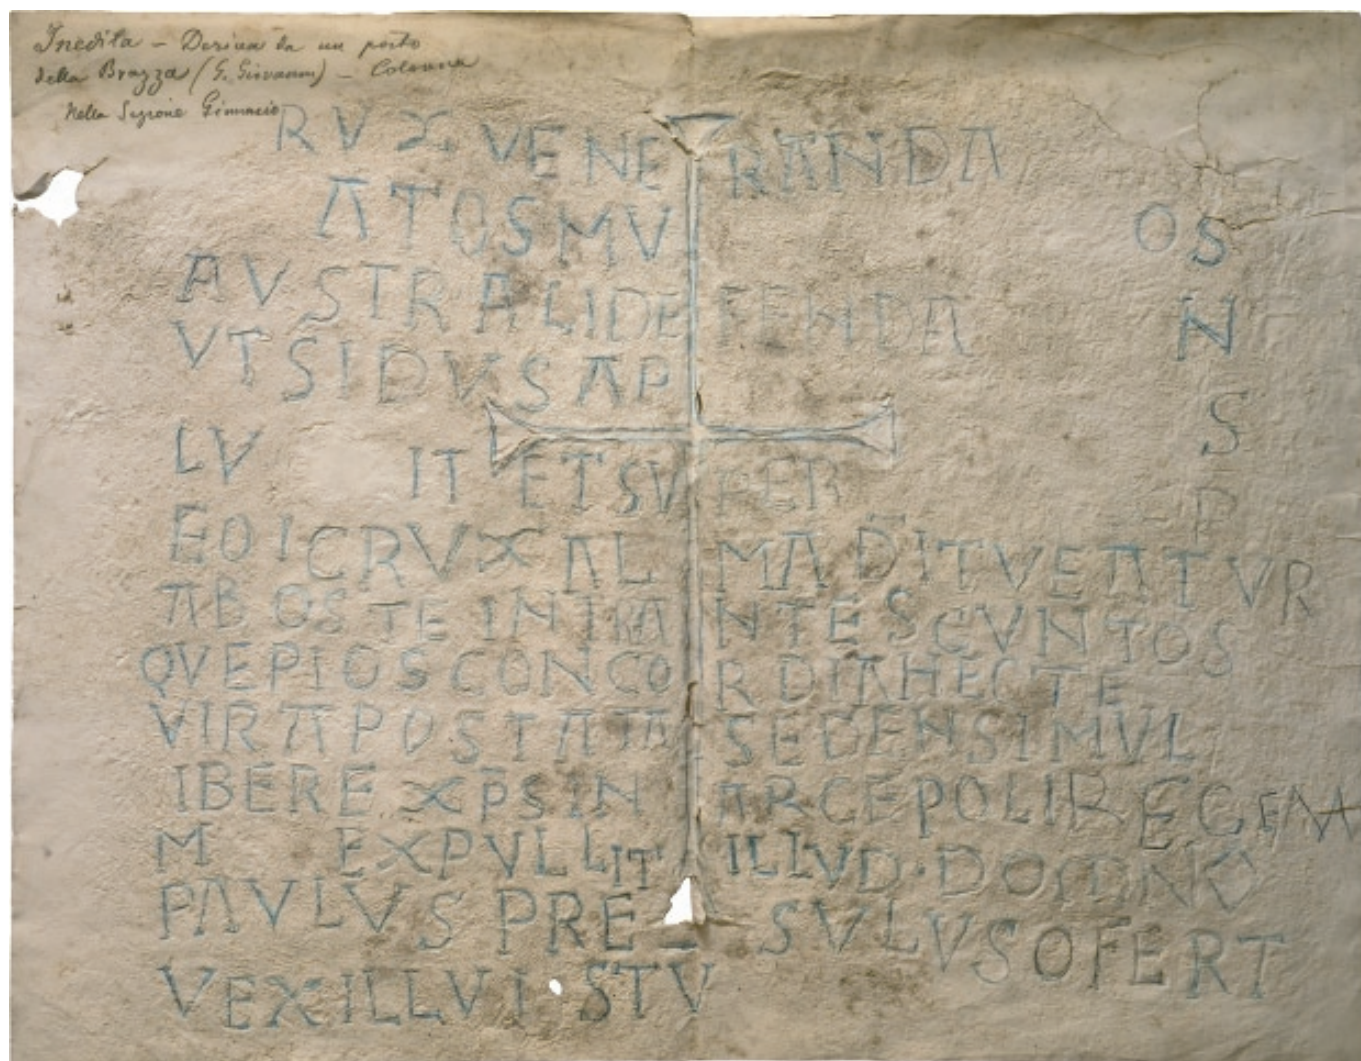 Inedita – Deriva da un porto
della Brazza (S. Giovanni) – Colonna
Nella Sezione Ginnasio
RVX VENERANDA
ATOSMV OS
AVSTRALIDEFENDA N
VTSIDVSAP S
LV IT ETSVPER P
EOICRVXALMADITVEATVR
ABOSTEINTRANTESCVNTOS
QVEPIOSCONCORDIAHECTE
VIRAPOSTATASEDENSIMVL
IBERE XPSINARCEPOLIREGEM
M EXPVLLIT ILLVD·DOMNV
PAVLVSPRESVLVSOFERT
VEXILLVISTV